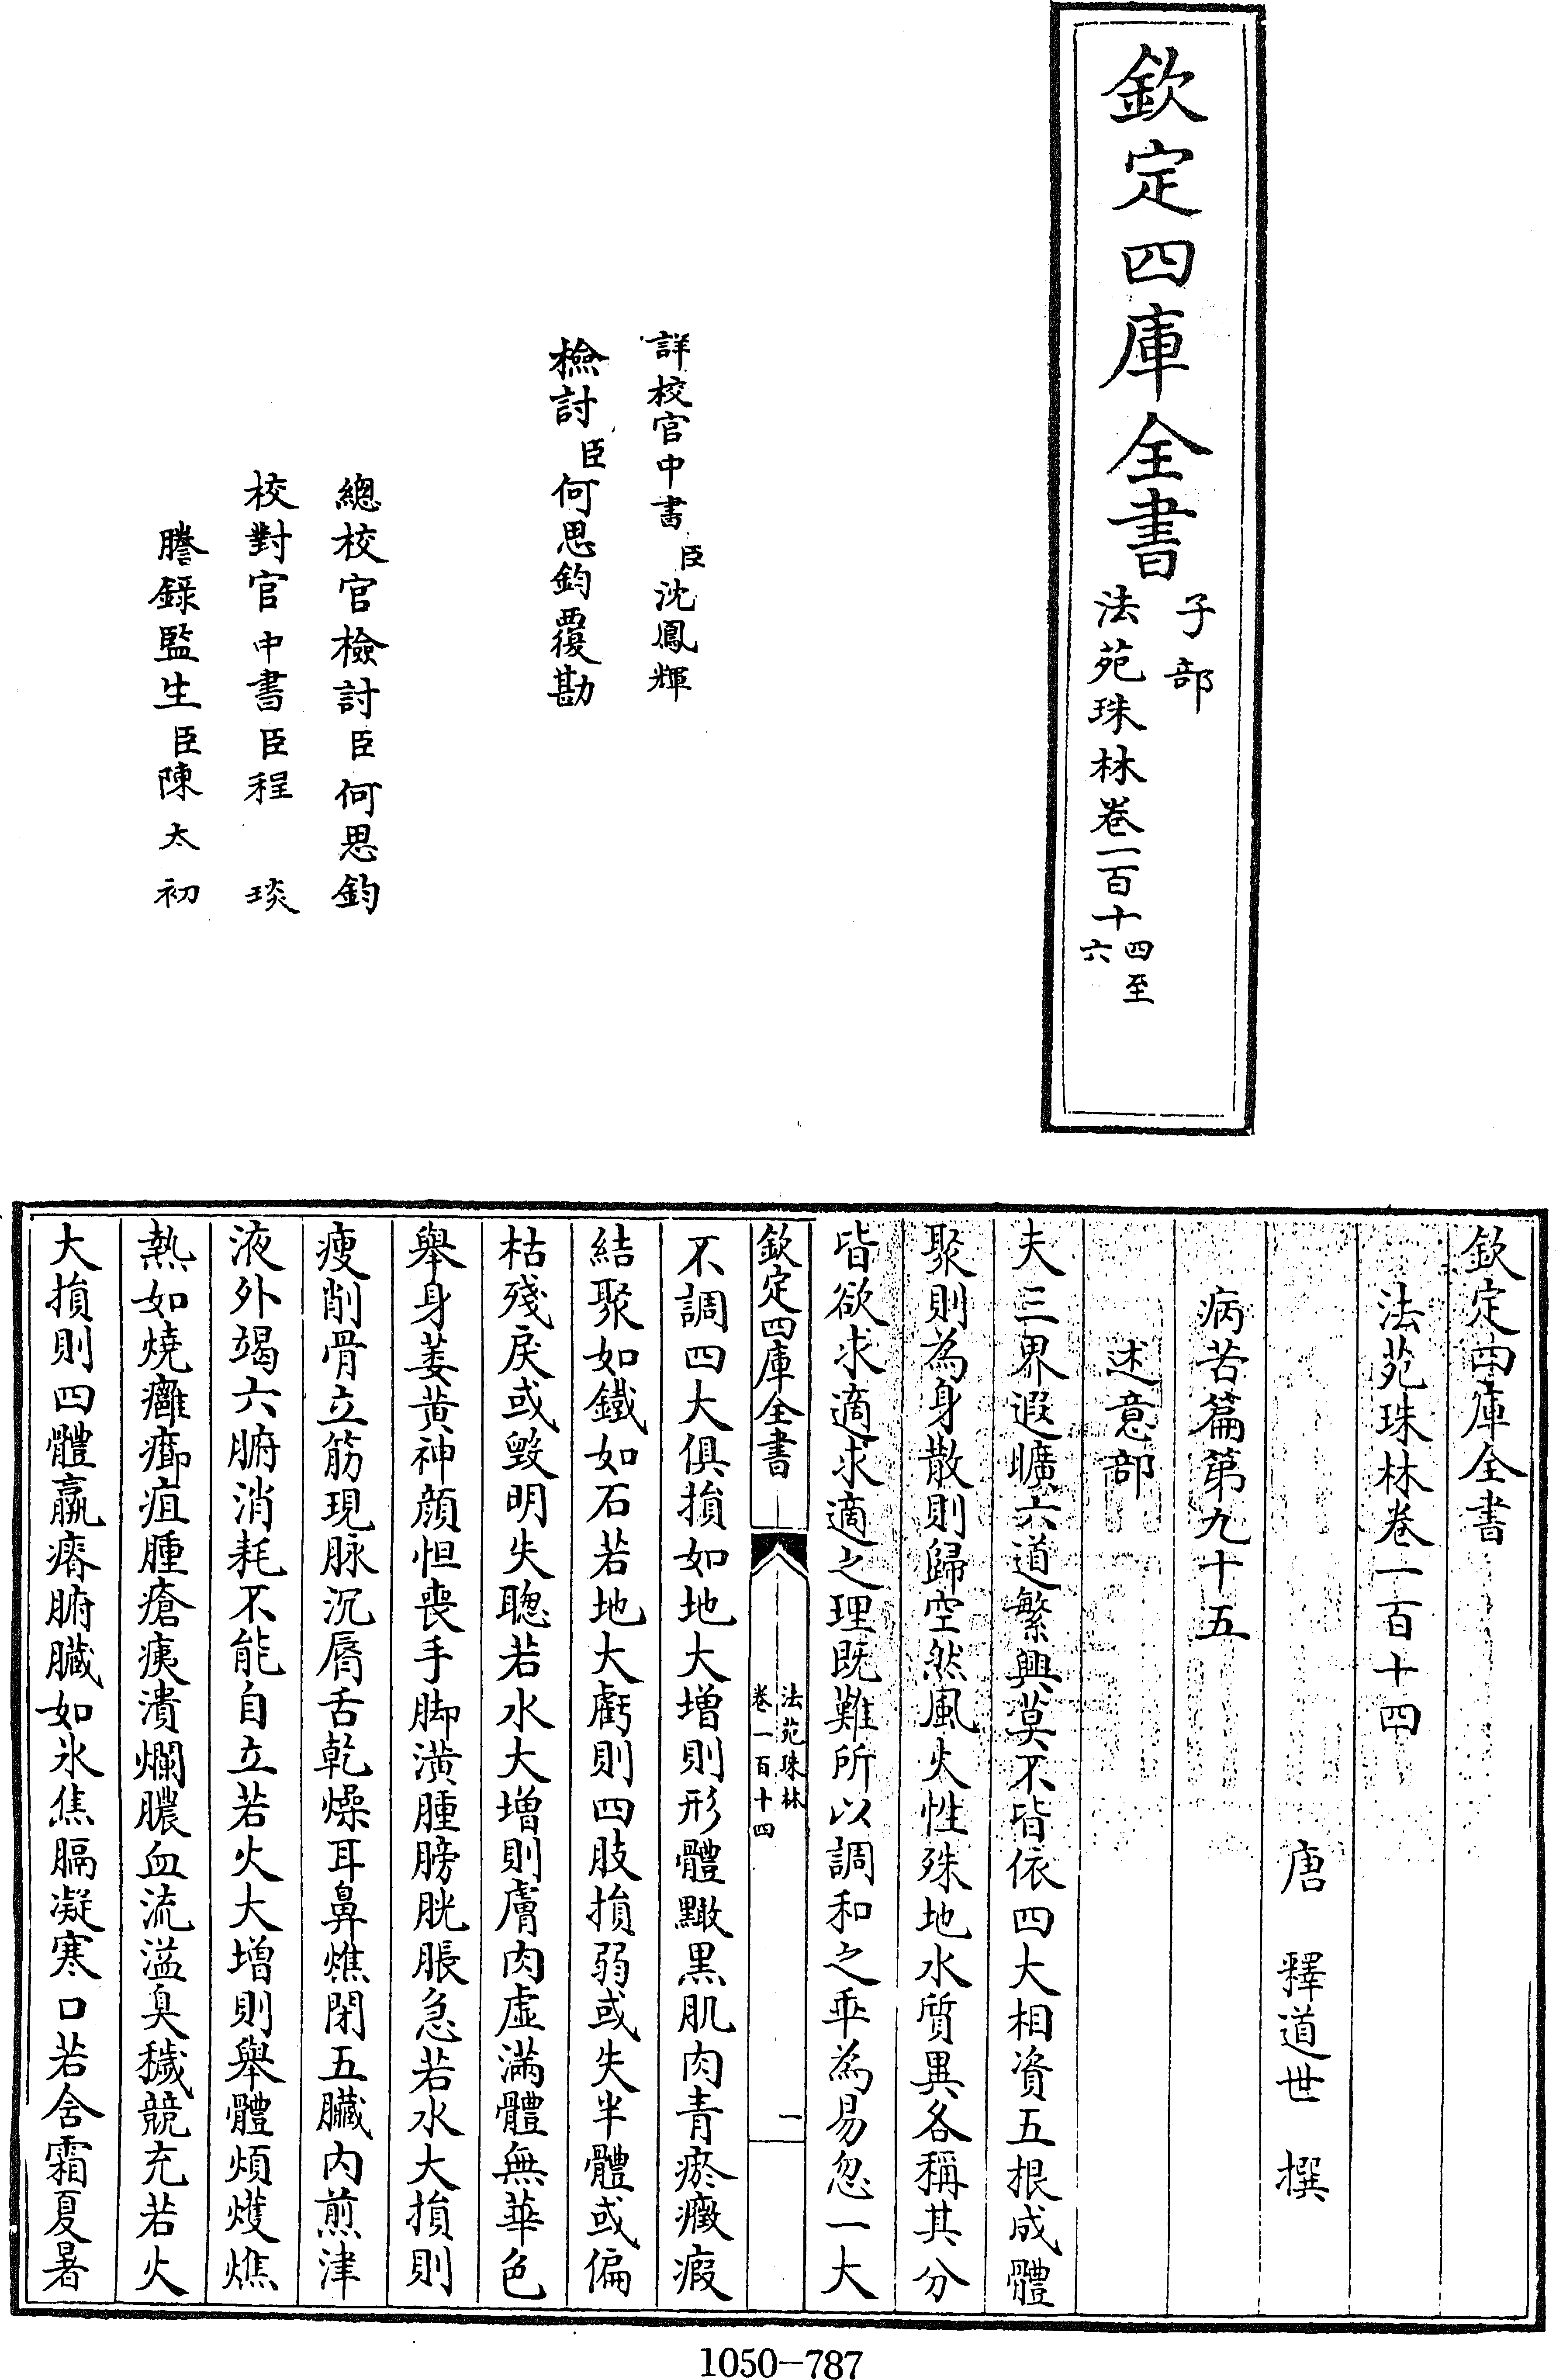 欽定四庫全書
子部
法苑珠林卷一百十四至六
詳校官中書臣沈鳳輝
檢討臣何思鈞覆勘
總校官檢討臣何思鈞
校對官中書臣程琰
謄錄監生臣陳太初
欽定四庫全書
法苑珠林卷一百十四
唐 釋道世 撰
病苦篇第九十五
述意部
夫三界遐曠六道繁興莫不皆依四大相資五根成體
聚則為身散則歸空然風火性殊地水質異各稱其分
皆欲求適求適之理既難所以調和之乖為易忽一大
欽定四庫全書
法苑珠林
卷一百十四
一
不調四大俱損如地大增則形體黮黑肌肉青瘀癥瘕
結聚如鐵如石若地大虧則四肢損弱或失半體或偏
枯殘戾或毀明失聰若水大増則膚肉虛滿體無華色
舉身萎黄神顔怛喪手脚潢腫膀胱脹急若水大損則
瘦削骨立筋現脉沉脣舌乾燥耳鼻燋閉五臟內煎津
液外竭六腑消耗不能自立若火大增則舉體煩㸌燋
熱如燒癰癤疽腫瘡痍潰爛膿血流溢臭穢競充若火
大損則四體羸瘠腑臟如氷焦膈凝寒口若含霜夏暑
1050-787